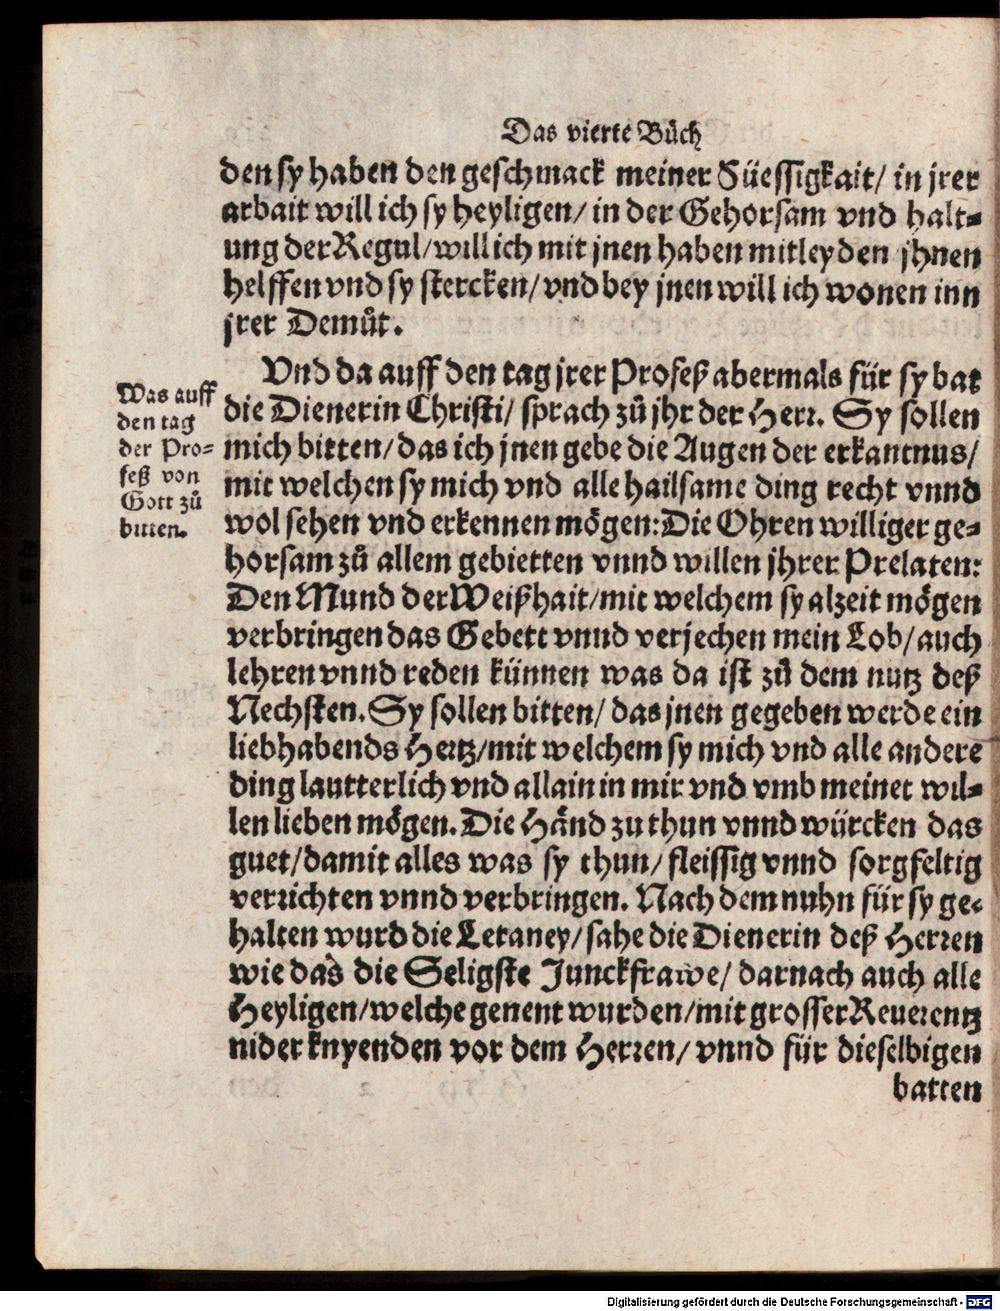 Das vierte Bůch
den sy haben den geschmack meiner Süessigkait/ in jrer
arbait will ich sy heyligen/ in der Gehorsam vnd halt-
ung der Regul/ will ich mit jnen haben mitleyden jhnen
helffen vnd sy stercken/ vnd bey jnen will ich wonen inn
jrer Demůt.
Vnd da auff den tag jrer Profeß abermals für sy bat
die Dienerin Christi/ sprach zů jhr der Herr. Sy sollen
mich bitten/ das ich jnen gebe die Augen der erkantnus/
mit welchen sy mich vnd alle hailsame ding recht vnnd
wol sehen vnd erkennen mögen: Die Ohren williger ge-
horsam zů allem gebietten vnnd willen jhrer Prelaten:
Den Mund der Weißhait/ mit welchem sy alzeit mögen
verbringen das Gebett vnnd verjechen mein Lob/ auch
lehren vnnd reden künnen was da ist zů dem nutz deß
Nechsten. Sy sollen bitten/ das jnen gegeben werde ein
liebhabends Hertz/ mit welchem sy mich vnd alle andere
ding lautterlich vnd allain in mir vnd vmb meinet wil-
len lieben mögen. Die Händ zu thun vnnd würcken das
guet/ damit alles was sy thun/ fleissig vnnd sorgfeltig
verrichten vnnd verbringen. Nach dem nuhn für sy ge-
halten wurd die Letaney/ sahe die Dienerin deß Herren
wie das die Seligste Junckfrawe/ darnach auch alle
Heyligen/ welche genent wurden/ mit grosser Reuerentz
nider knyenden vor dem Herren/ vnnd für dieselbigen
batten
Was auff
den tag
der Pro-
feß von
Gott zů
bitten.
Digitalisierung gefördert durch die Deutsche Forschungsgemeinschaft - DFG